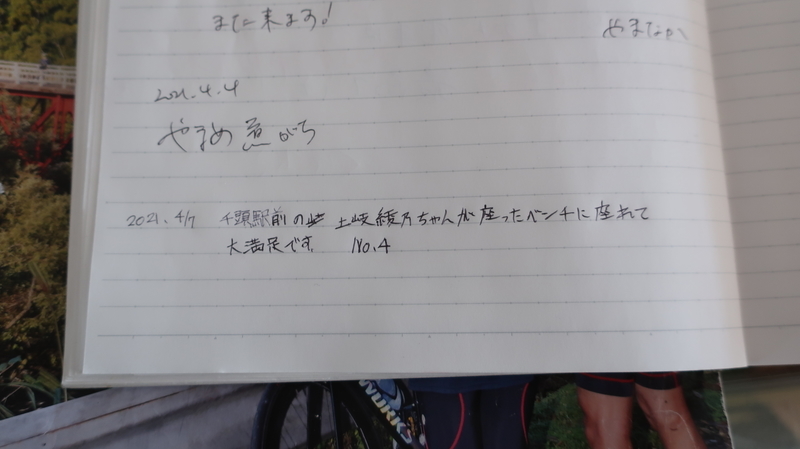 また来ます!
やまなか
2021.4.4
やまめ 急がち
2021. 4/7 千頭駅前の 土岐綾乃ちゃんが座ったベンチに座れて
大満足です。 No.4
WORKS